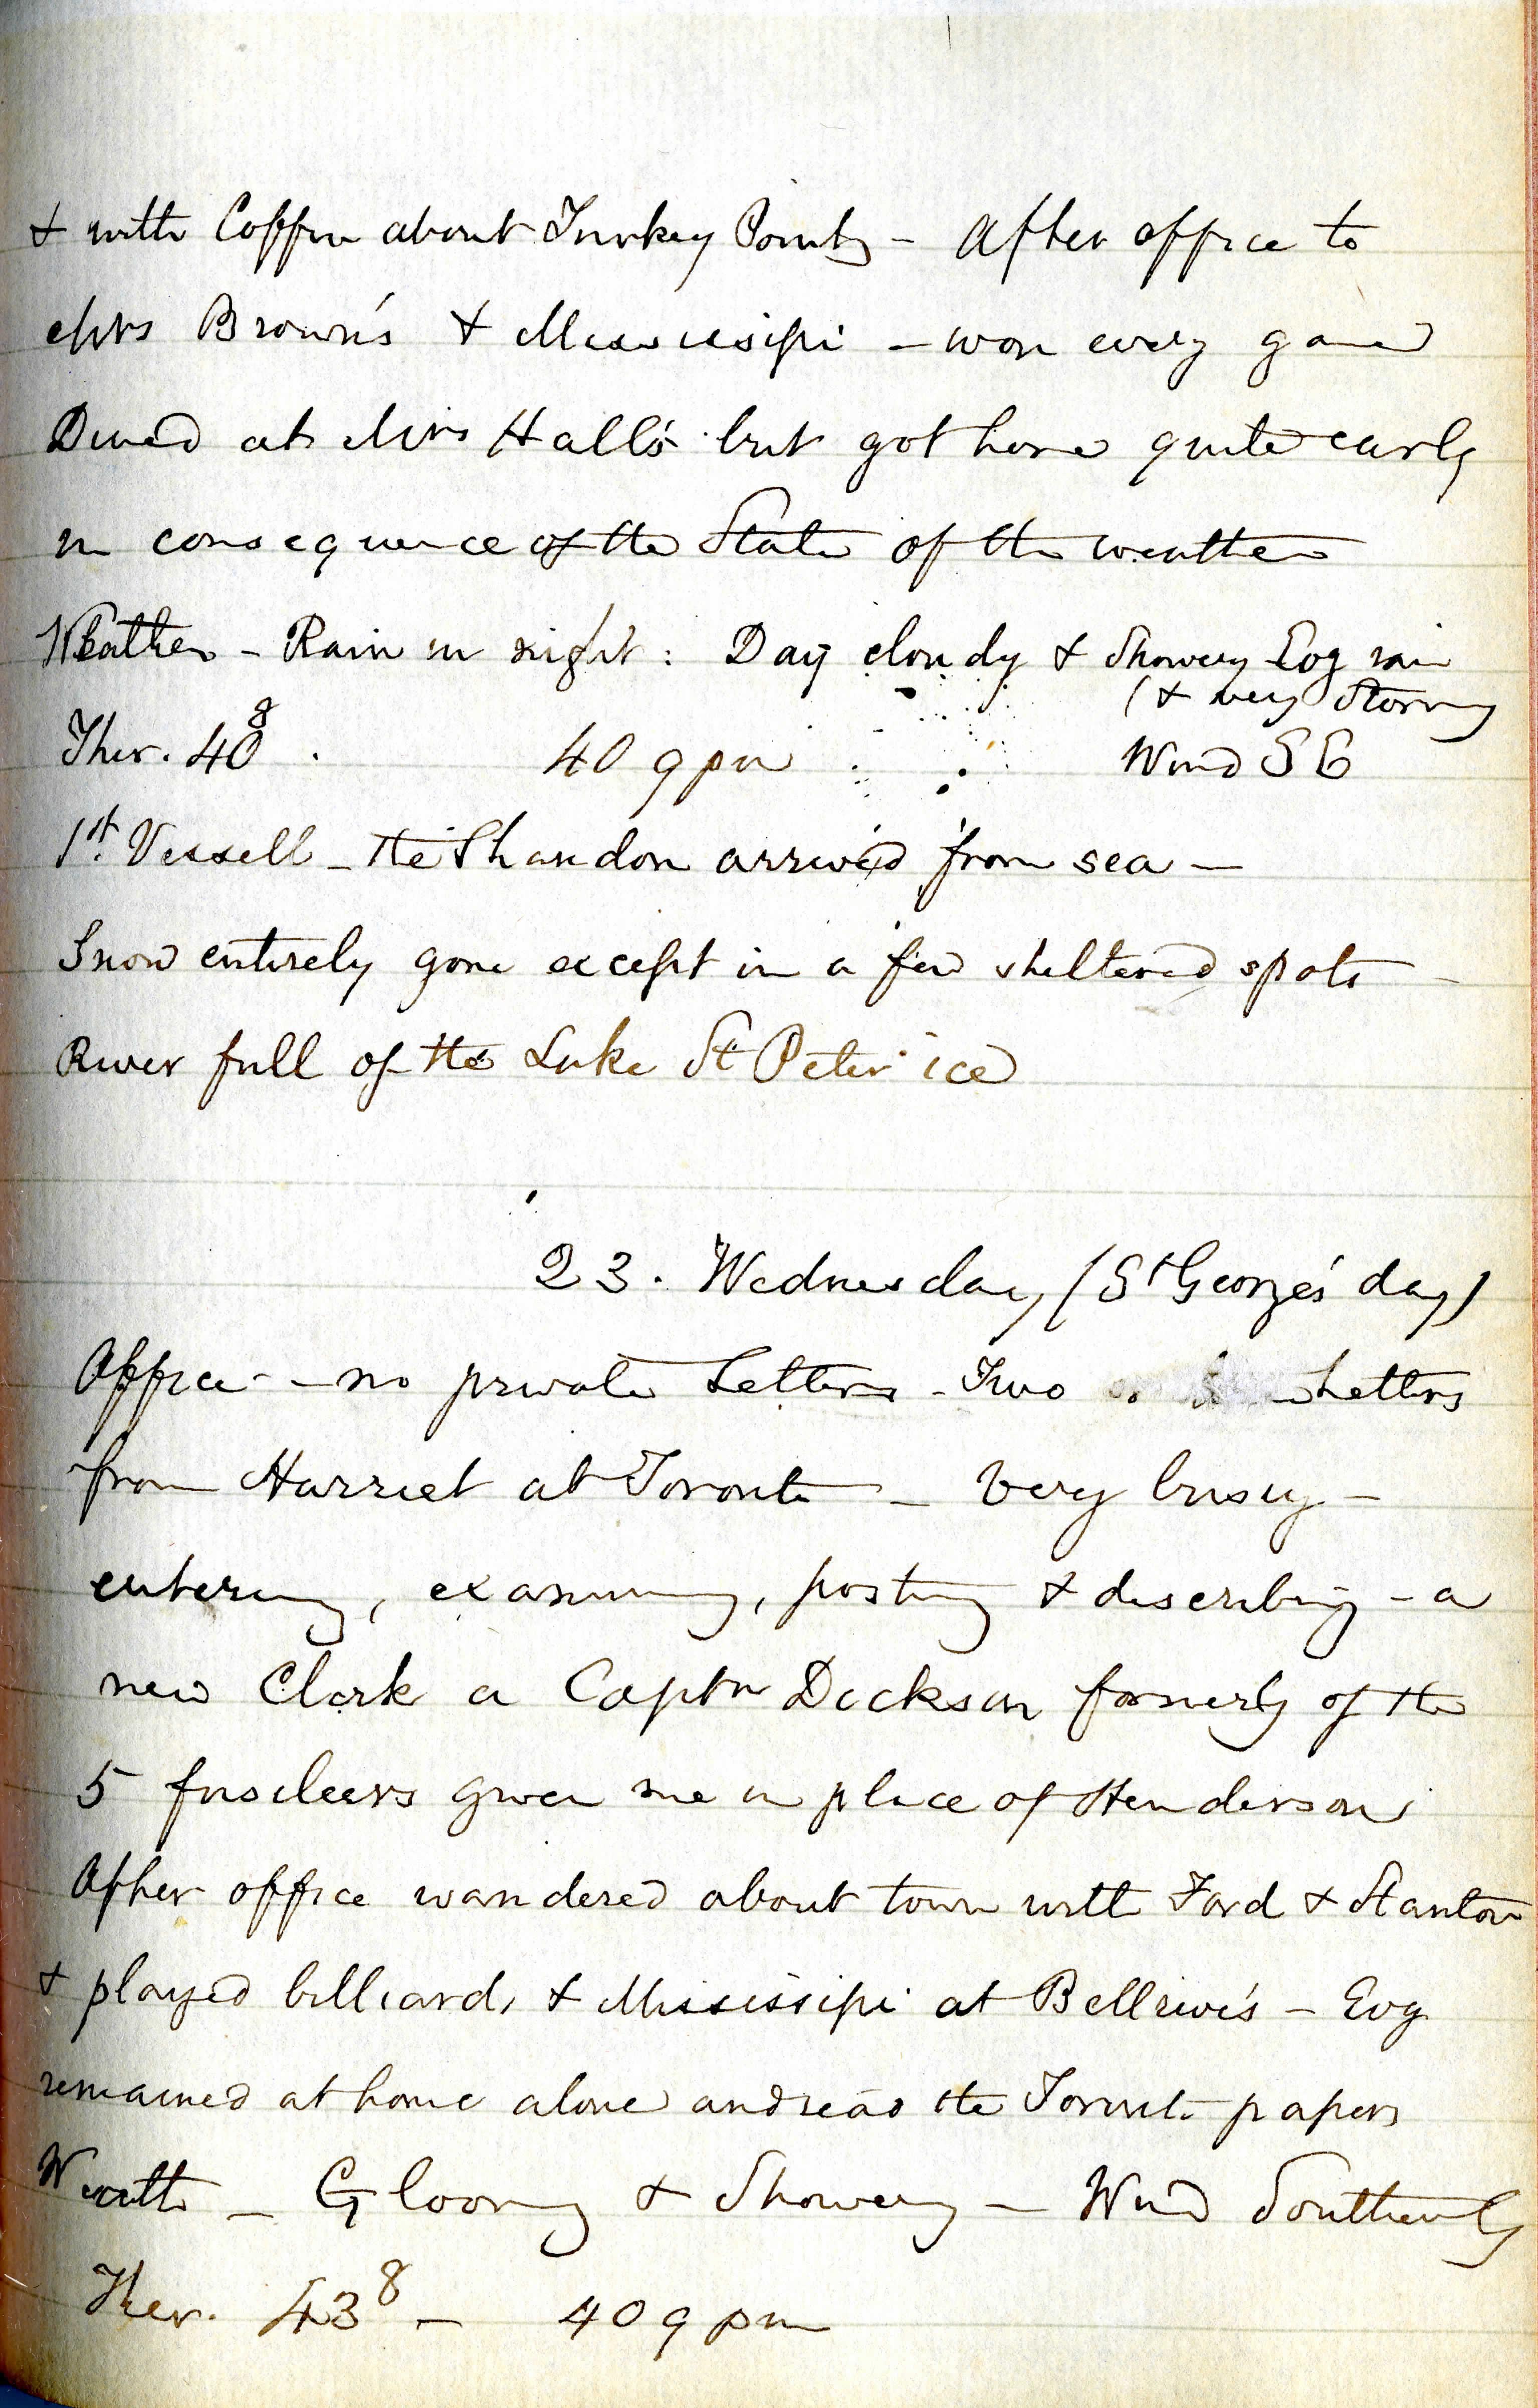 & with Coffin about Turkey Point - After office to
Mrs Brown's & Mississipi - won every game
Dined at Mrs Hall's but got home quite early
in consequence of the State of the weather
Weather - Rain in night : Day cloudy & Showery Evg rain
(& very Stormy
Ther. 40 8 . 40 9 pm Wind S E
1st. Vessell - the Shandon arrived from sea -
Snow entirely gone except in a few sheltered spots -
River full of the Lake St Peter ice
23. Wednesday (St George's day)
Office - no private Letters - Two Letters
from Harriet at Toronto - Very busy -
entering, examining, posting & describing - a
new Clerk a Captn Dickson formerly of the
5 fusileers given me in place of Henderson
After office wandered about town with Ford & Stanton
& played billiards & Mississipi at Bellrive's - Evg
remained at home alone and read the Toronto papers
Weather - Gloomy & Showery - Wind Southerly
Ther. 43 8 - 40 9 pm